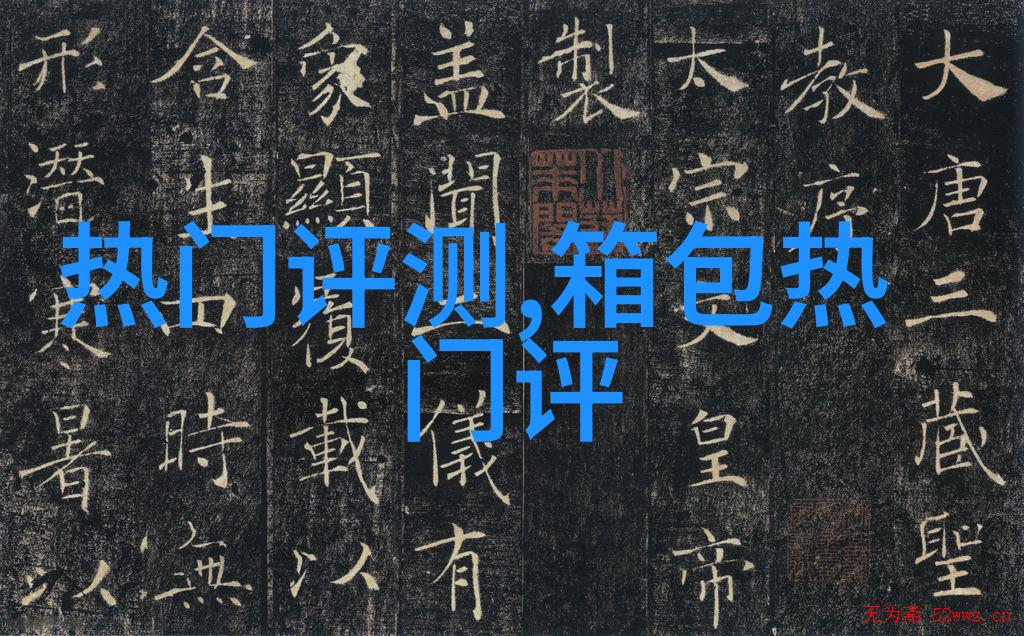 大唐三藏聖
教序
太宗文皇帝
製
盖聞二儀有
象顯覆載以
含生四時無
形潛寒暑以
热门评测,箱包热
门评
无为斋 52wwz.cn